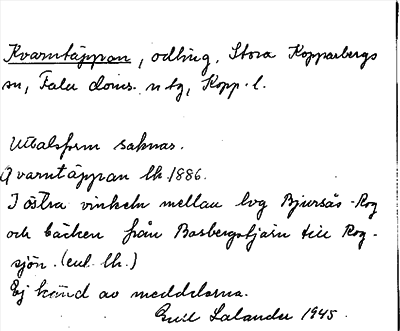 Kvarntäppan, odling, Stora Kopparbergs
sn, Falu doms. n tg, Kopp. l.
Uttalsform saknas.
Qvarntäppan lh 1886.
I östra vinkeln mellan lvg Bjursås - Rog
och bäcken från Basbergstjärn till Rog-
sjön. (enl. lh.)
Ej känd av meddelarna.
Emil Lalander 1945.